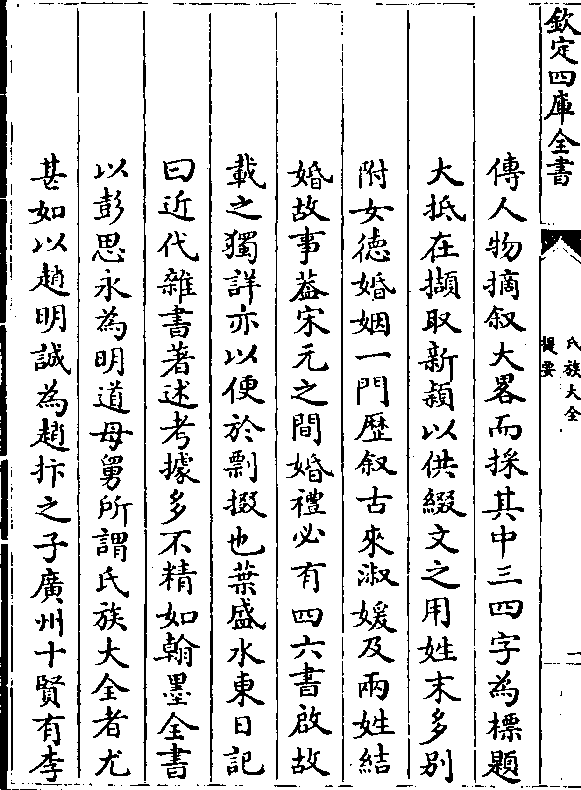 欽定四庫全書
氏族大全
提要
一
傳人物摘叙大畧而採其中三四字為標題
大抵在擷取新穎以供綴文之用姓末多別
附女徳婚姻一門歴叙古來淑媛及兩姓結
婚故事葢宋元之間婚禮必有四六書啟故
載之獨詳亦以便於剽掇也葉盛水東日記
曰近代雜書著述考據多不精如翰墨全書
以彭思永為明道母舅所謂氏族大全者尤
甚如以趙明誠為趙抃之子廣州十賢有李